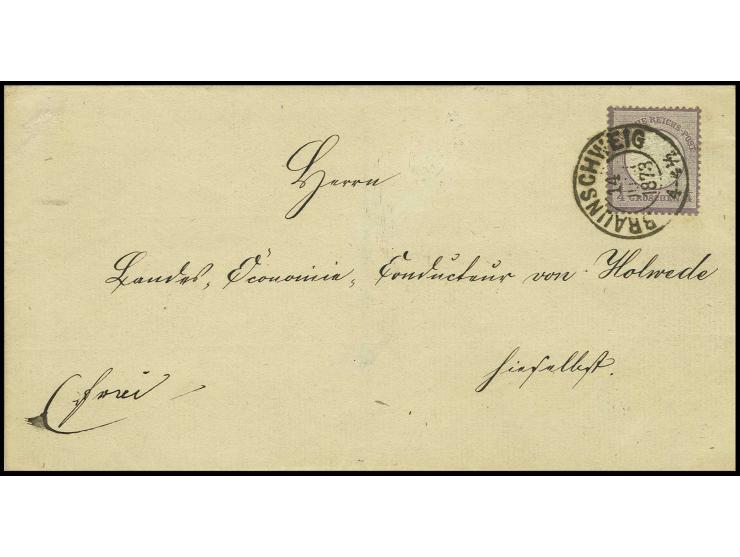 REICHS-POST
GROSCHEN
BRAUNSCHWEIG
1873
Herrn
Landes-Öconomie-Conducteur von Holwede
hieselbst.
frei